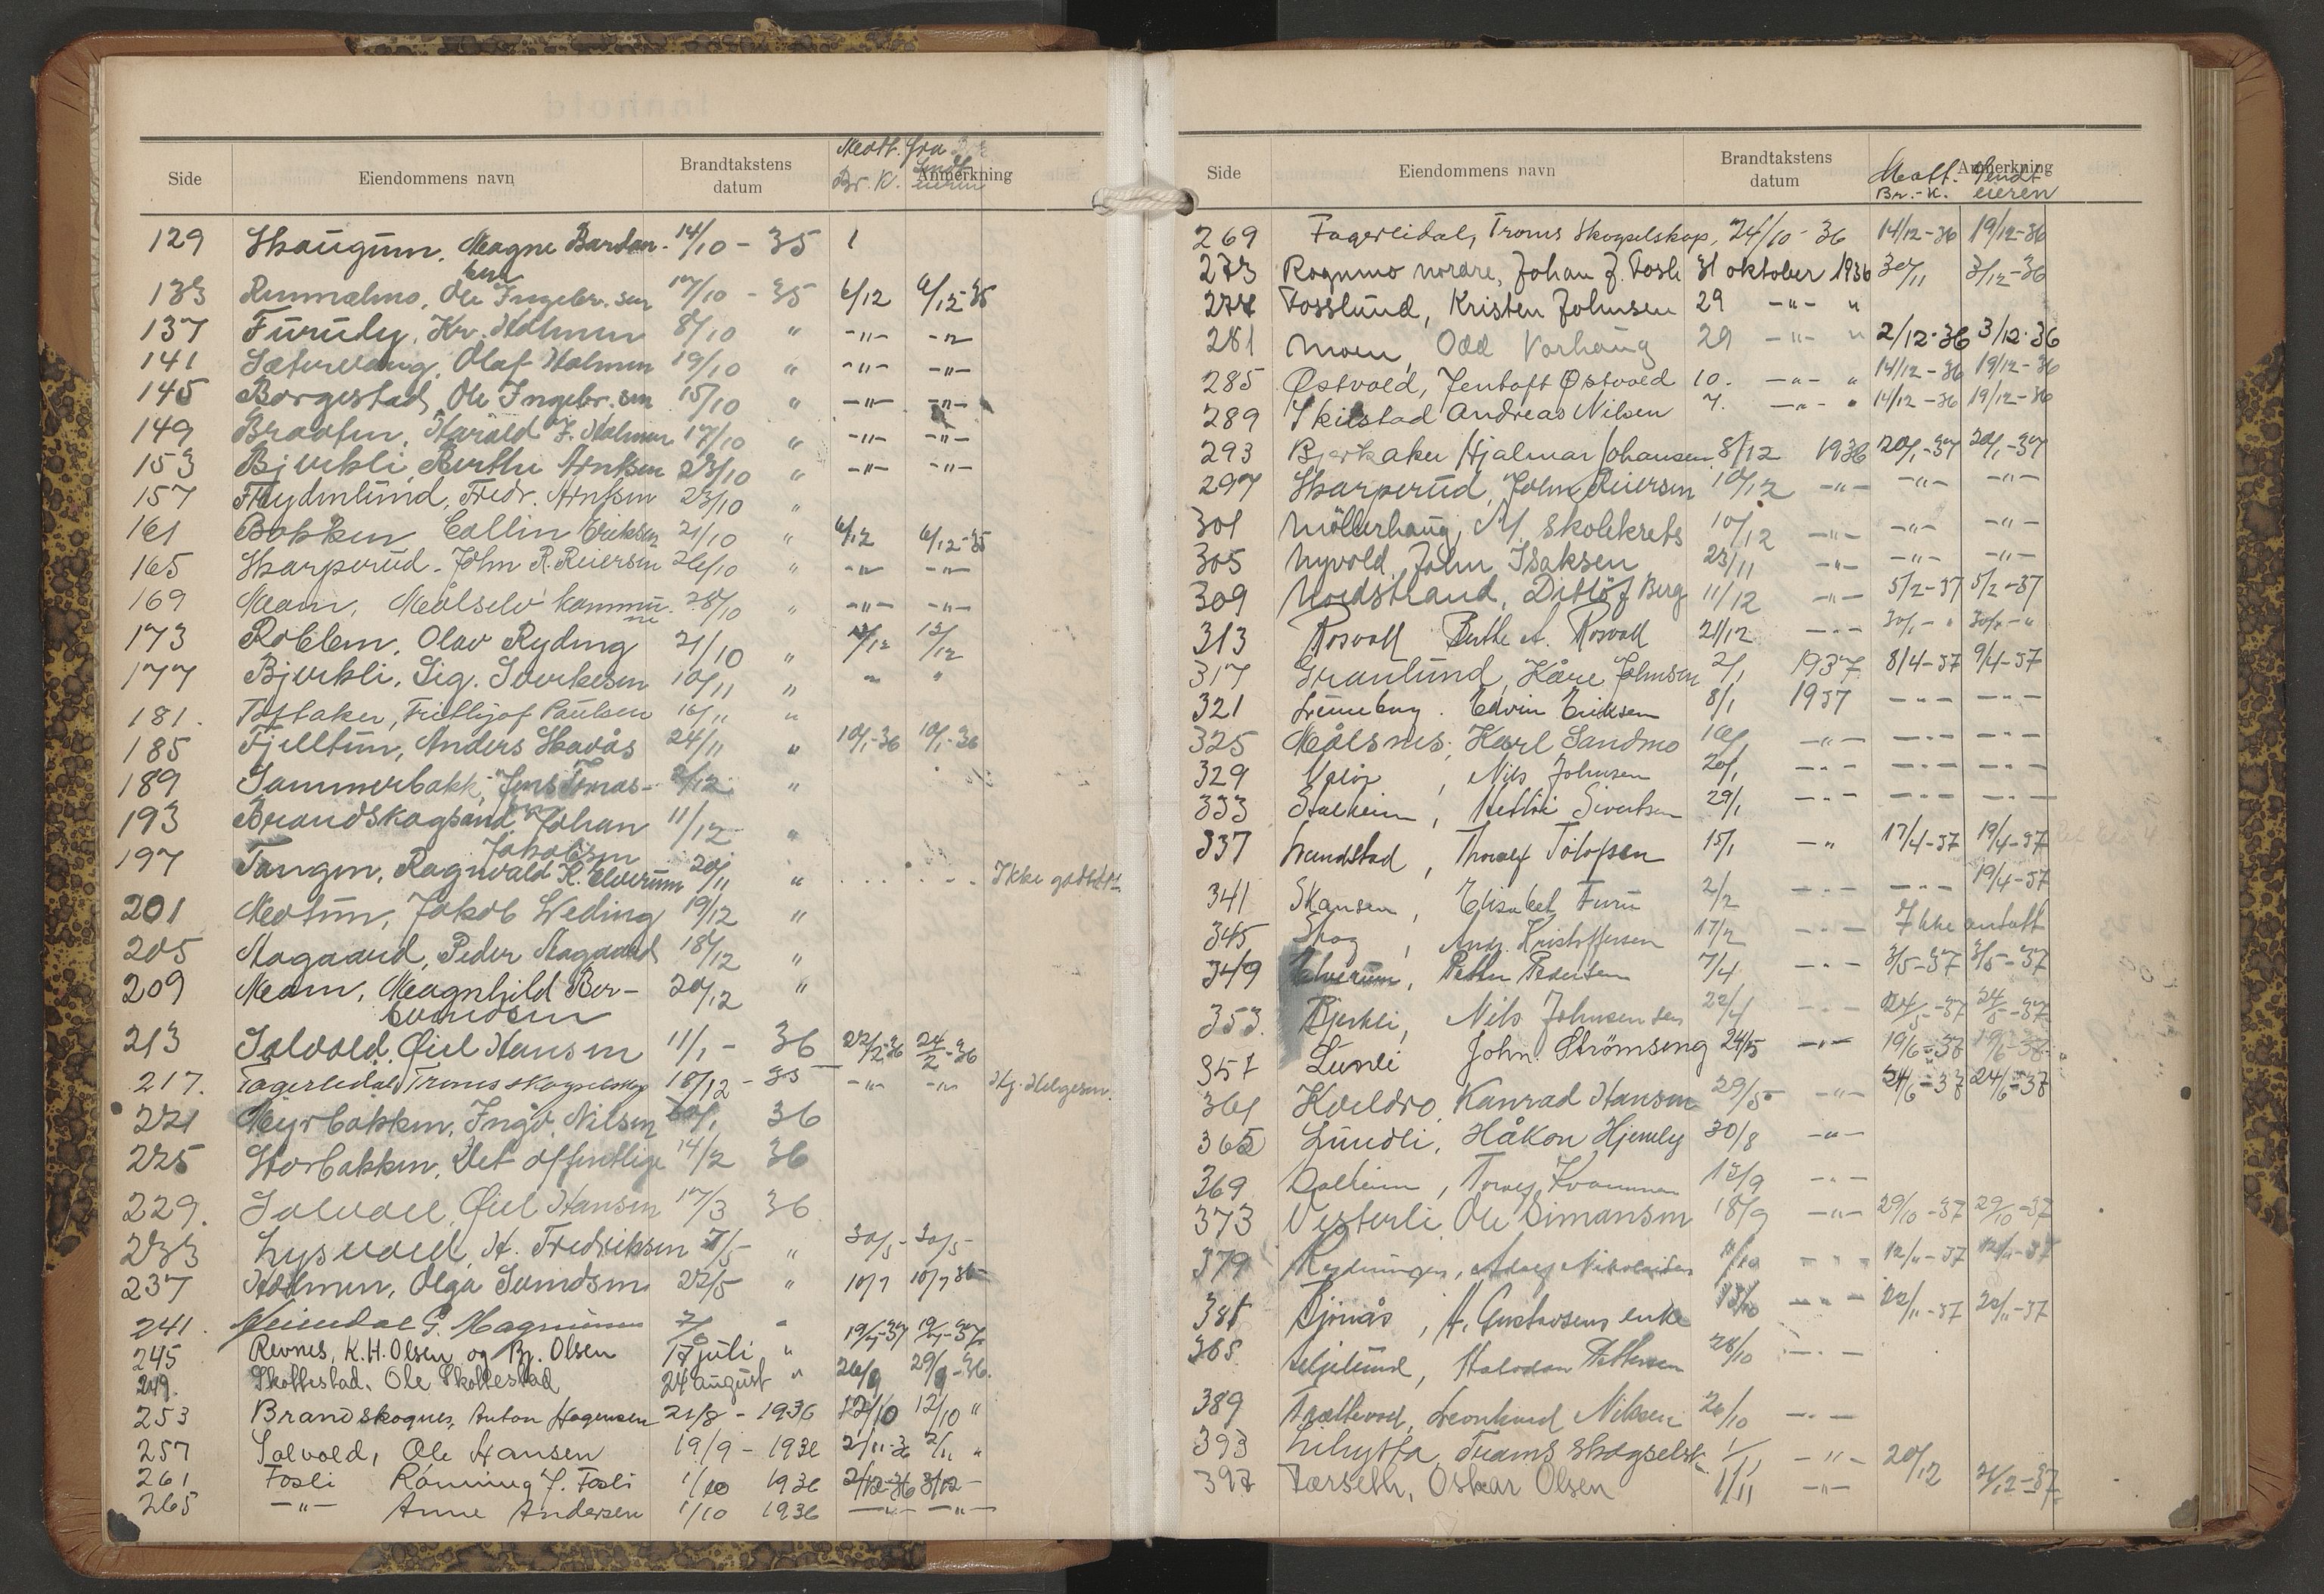 Side Eiendommens navn Brandtakstens datum Mott. fra Br. K. Sendt eieren Anmerkning
129 Skaugum, Magne Bardan- 14/10 - 35
sen
133 Rusmalmo, Ole Ingebr.sen 17/10 - 35 6/12 6/12-35
137 Furuly, Kr. Holmen 8/10 " -"- -"-
141 Sætervang, Olaf Holmen 19/10 " -"- -"-
145 Borgestad, Ole Ingebr.sen 15/10 " -"- -"-
149 Bradfen, Harald F. Holmen 17/10 " -"- -"-
153 Bjerkli, Berthe Arntsen 23/10 " -"- -"-
157 Frydenlund, Fredr. Arntsen 23/10 "
161 Bakken Collin Eriksen 21/10 " 6/12 6/12-35
165 Skarperud - John R. Reiersen 26/10 " -"- -"-
169 Moen, Målselv kommu- 28/10 " -"- -"-
ne
173 Roblem, Olav Ryding 21/10 " 13/12 13/12
177 Bjerkli, Sig. Sverkesen 10/11 " " "
181. Toftaker, Frithjof Paulsen 16/11 "
185 Fjelltun, Anders Skavås 24/11 " 10/1-36 10/1-36
189 Sommerbakk, Jens Tomas- 2/12 "
sen
193 Brandskogsand Johan 11/12 - "
Jakobsen
197 Tangen, Ragnvald K. Elverum 20/11 " Ikke godtatt
201 Motun, Jakob Weding 19/12 "
205 Aagaard, Peder Aagaard 18/12 "
209 Moen, Magnhild Ber- 20/12 "
tomdsen
213 Solvold, Øiel Hansen 11/1 - 36 22/2-36 24/2-36
217. Fagerlidal Troms skogselskap 18/12 - 35 -"- -"- Hj. Helgesen.
221 Myrbakken, Ingv. Nilsen 20/1 36
225 Storbakken, Det offentlige 14/2 36
229. Solvoll, Øiel Hansen 17/3 36
233 Lysvold, H. Fredriksen 7/5 - " 30/5 - 30/5 -
237 Holmen, Olga Samdsen 22/5 " 10/7 10/7 36
241. Heiendal G. Magnussen 7/6 " 19/4-37 19/4-37
245 Revnes, K.H. Olsen og Bj. Olsen 17 juli "
249. Skottestad. Ole Skottestad 24 august " 26/9 29/9-36.
253 Brandskognes, Anton Hagensen 21/8 - 1936 12/10 12/10 "
257 Solvold, Ole Hansen 19/9 - 1936 2/11-36 2/11 "
261 Fosli Roming J. Fosli 1/10 1936 2/12-36 3/12 -
265 -"- Anne Andersen 1/10 1936 -"- -"-
Side Eiendommens navn Brandtakstens datum Mott. Br.-K. Sendt eieren Anmerkning
269 Fagerlidal, Troms Skogselskap, 24/10 - 36 14/12-36 19/12-36
273 Rognmo nordre, Johan J. Fosli 31 oktober 1936 30/11 3/12-36
277 Fosslund, Kristen Johnsen 29 -"- "
281 Moen, Odd Vorhaug 29 -"- " 2/12-36 3/12-36
285 Østvold, Jentoft Østvold 10. -"- " 14/12-36 19/12-36
289 Skilstad Andreas Nilsen 7. -"- " 14/12-36 19/12-36
293 Bjerkaker Hjalmar Johansen 8/12 1936 20/1-37 20/1-37
297 Skarperud, John Reiersen 10/12 -"- -"- -"-
301 Möllerhaug, M. skolekrets 10/12 -"- -"- -"-
305 Nyvold, John Isaksen 23/11 -"- -"- -"-
309 Nordstrand, Ditlöf Berg 11/12 -"- 5/2-37 5/2-37
313 Rosvoll Berthe A. Rosvoll 21/12 -"- 30/1-" 30/1-"
317 Granlund, Kåre Johnsen 2/1 1937 8/4-37 9/4-37
321 Lunneborg. Edvin Eriksen 8/1 1937 -"- -"-
325 Målsnes, Karl Sandmo 16/1 -"- -"- -"-
329 Nils Johnsen 20/1 -"- -"- -"-
333 Stalheim, Sivertsen 29/1 -"- -"- -"-
337 Lundstad, Thoralf Tollofsen 15/1 -"- 17/4-37 19/4-37
341 Skansen, Elisabet Furu 2/2 -"- -"- 19/4-37
345 Skog, Andr. Kristoffersen 17/2 -"- Ikke antatt
349 Elverum, Petter Pedersen 7/4 -"- 3/5-37 3/5-37
353. Bjerkli, Nils Johnsen sen 22/4 -"- 24/5-37 24/5-37
357 Lunli John Strömseng 24/5 -"- 19/6-37 19/6-37
361 Kveldro, Konrad Hansen 29/5 -"- 24/6-37 24/6-37
365 Lundli, Håkon Hjemly 30/8 -"-
369 Dalheim, Torvey Kvammen 13/9 -"-
373 Vesterli, Ole Simonsen 18/9 -"- 29/10-37 29/10-37
379 Rydningen, Adolf Nikolaisen 11/10 -"- 12/11-37 12/11-37
381 Björnås, A. Gustavsens enke 13/10 -"- 22/11-37 22/11-37
385 Halvdan Pettersen 28/10 -"-
389 Trollvold, Leonhard Nilssen 26/10 -"-
393 Lihytta, Troms Skogselsk. 1/11 -"- 20/12
397 Forseth, Oskar Olsen 1/11 -"- 21/12-37